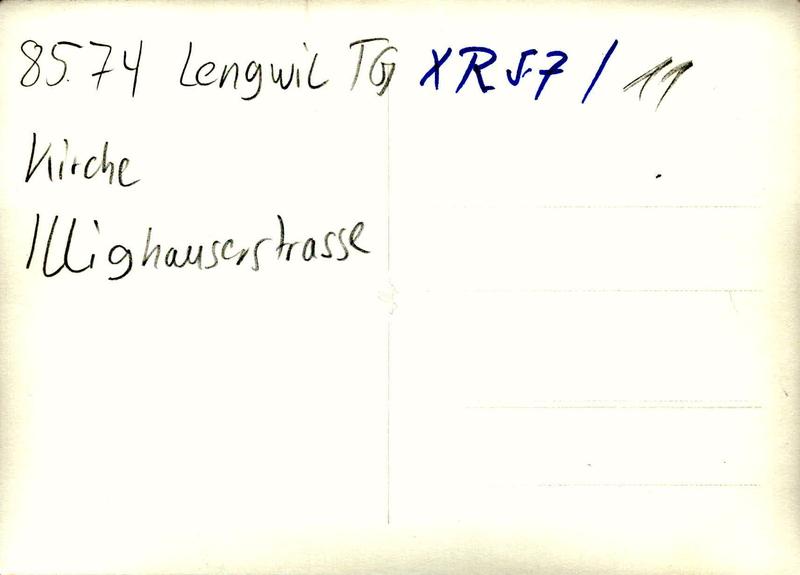 8574 Lengwil TG XR 57 / 11
Kirche
Illighauserstrasse